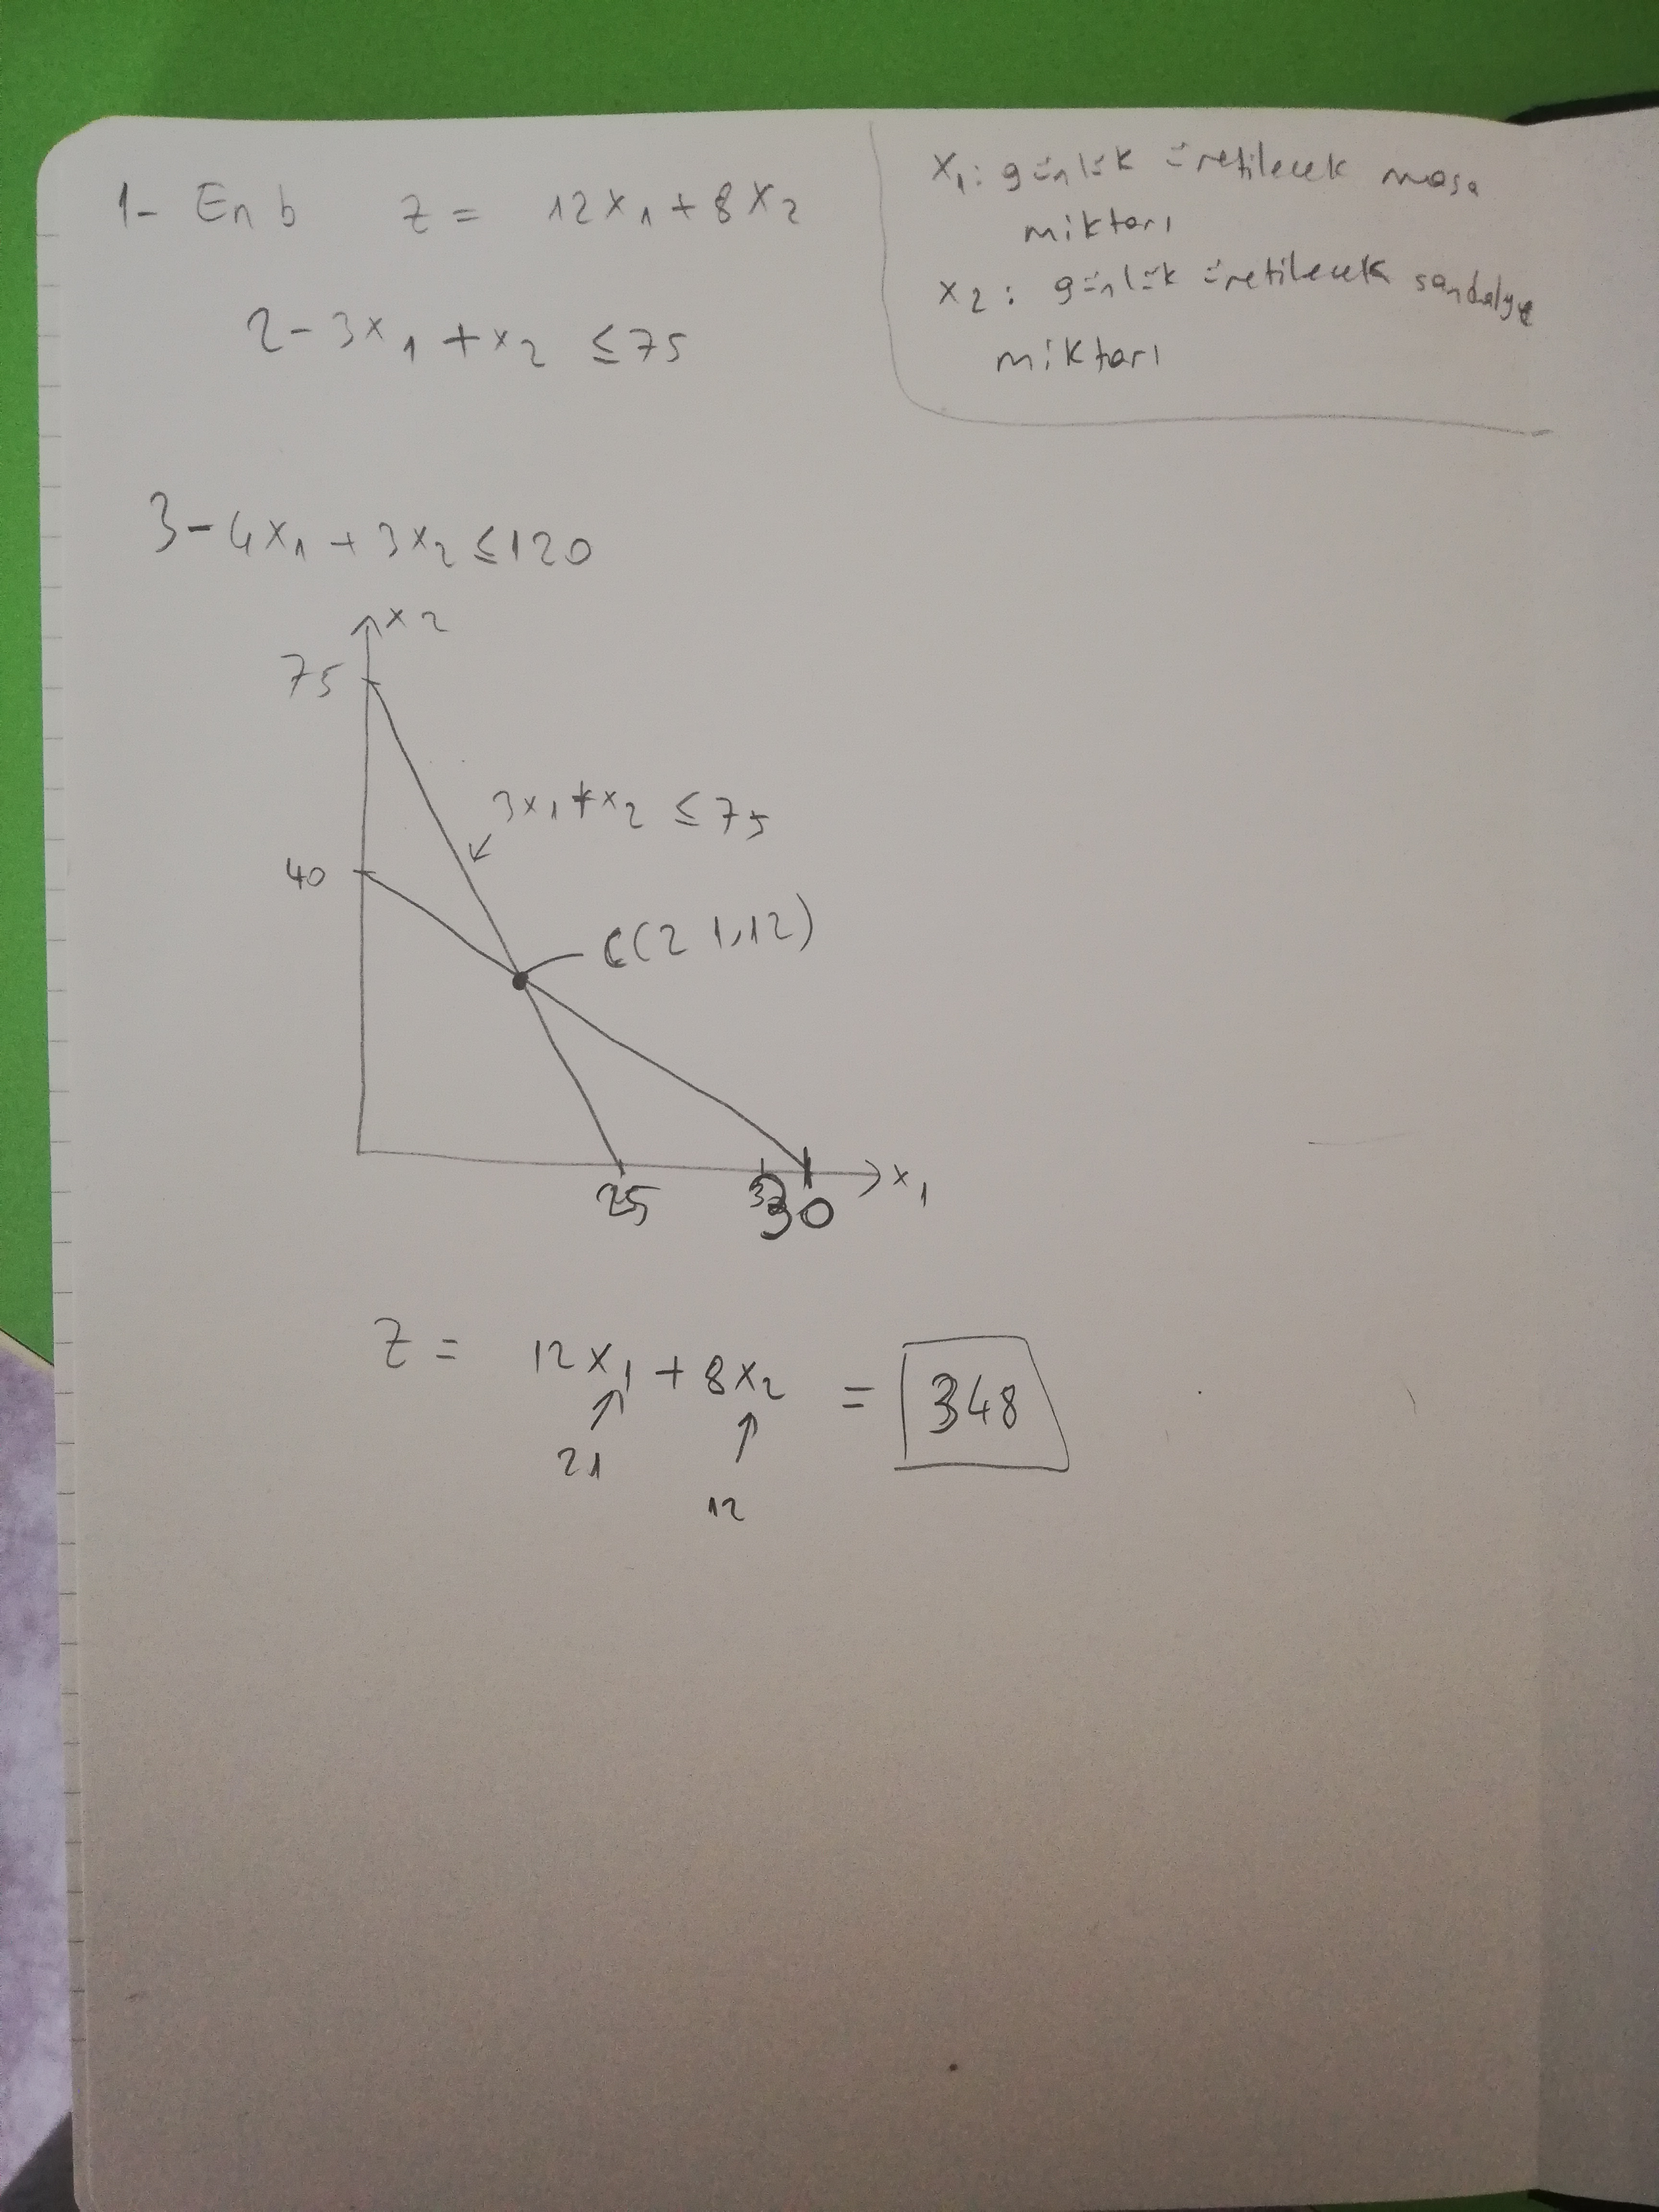 1- En b z = 12x₁ + 8x₂
2- 3x₁ + x₂ ≤ 75
x₁: günlük üretilecek masa
miktarı
x₂: günlük üretilecek sandalye
miktarı
3- 4x₁ + 3x₂ ≤ 120
x₂
75
3x₁ + x₂ ≤ 75
40
C(21,12)
x₁
25
30
z = 12x₁ + 8x₂ = 348
21
12